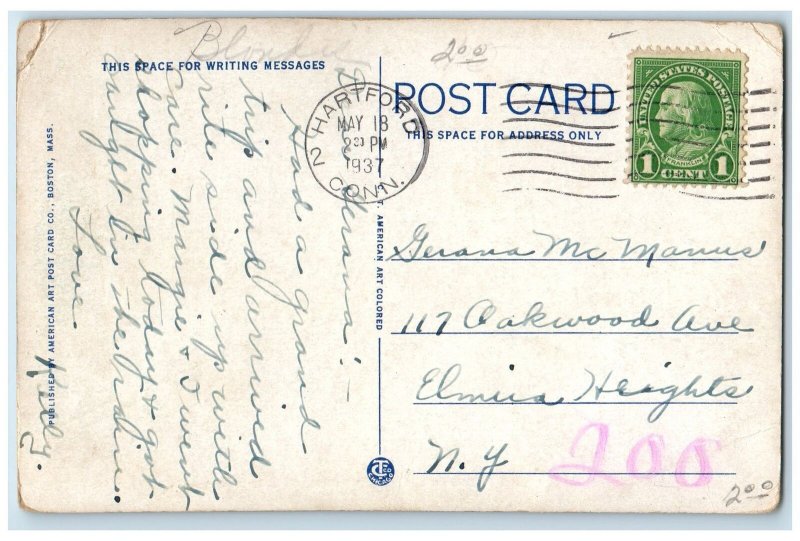 Blondie
2⁰⁰
THIS SPACE FOR WRITING MESSAGES
POST CARD
THIS SPACE FOR ADDRESS ONLY
HARTFORD
MAY 18
2 30 PM
1937
CONN.
2
UNITED STATES POSTAGE
FRANKLIN
1 CENT 1
D Gerana! –
Had a grand
trip and arrived
rite side up with
care. Margie & I went
shopping today & got
caught in the rain.
Love.
Kady.
PUBLISHED BY AMERICAN ART POST CARD CO., BOSTON, MASS.
AMERICAN ART COLORED
CHICAGO
Gerana Mc Manus
117 Oakwood Ave
Elmira Heights
N.Y
200
2⁰⁰